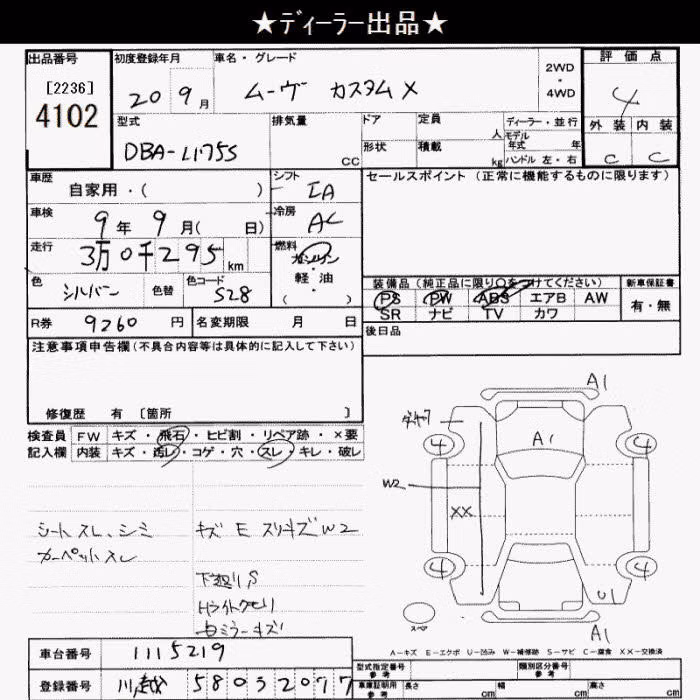 ★ディーラー出品★
出品番号 初度登録年月 車名・グレード 2WD ・ 4WD 評価点
[2236] 4102 20 9月 ムーヴ カスタムX 4
型式 排気量 ドア 定員 ディーラー・並行 外装 内装
DBA-L175S cc 形状 積載 人 kg モデル年式 年 ハンドル 左・右 C C
車歴 自家用・( ) シフト IA セールスポイント (正常に機能するものに限ります)
車検 9年 9月( 日) 冷房 AC
走行 3万0千295 km 燃料 ガソリン・軽油・( )
色 シルバー 色替 色コード S28
装備品 (純正品に限り○をつけてください) 新車保証書
PS PW ABS エアB AW 有・無
SR ナビ TV カワ
R券 9260円 名変期限 月 日 後日品
注意事項申告欄(不具合内容等は具体的に記入して下さい)
修復歴 有 [箇所 ]
検査員 FW キズ・飛石・ヒビ割・リペア跡・×要
記入欄 内装 キズ・汚レ・コゲ・穴・スレ・キレ・破レ
シートスレ、シミ
カーペットスレ
キズ E スリキズW2
下廻りS
Hライトクモリ
A1
4 A1 4
W2 XX
4 4
U1
スペア A1
A-キズ E-エクボ U-凹み W-補修跡 S-サビ C-腐食 XX-交換済
車台番号 1115219
登録番号 川越 580 う 2077
型式指定番号 参考 類別区分番号 参考
車庫証明用 参考 長さ cm 幅 cm 高さ cm